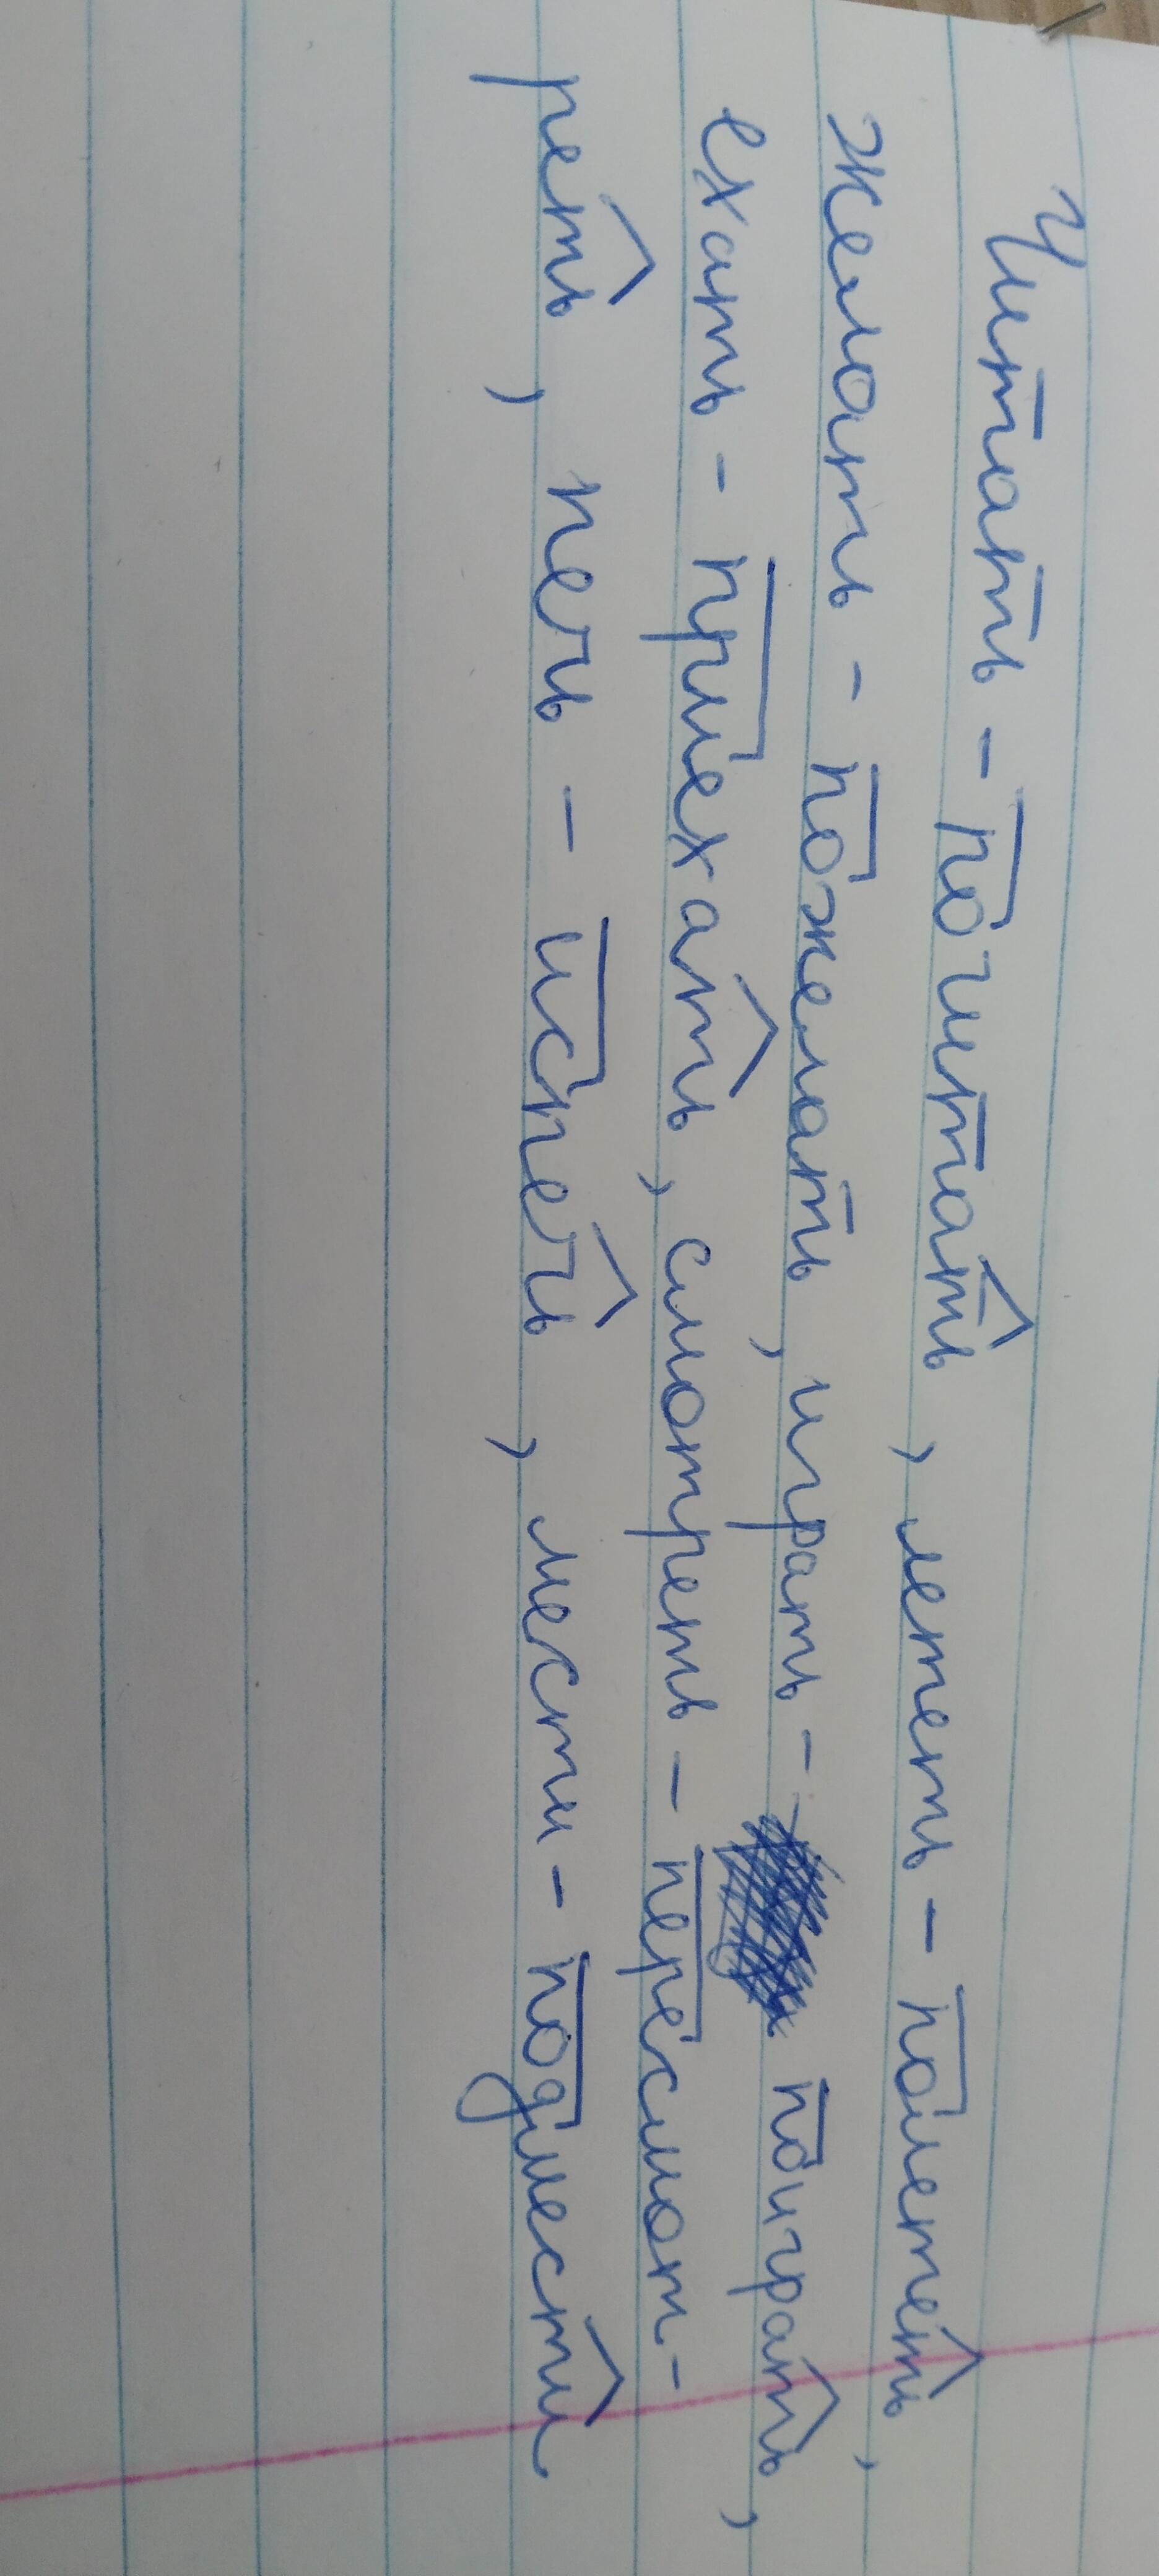 Читать - почитать, лететь - полететь,
желать - пожелать, играть - поиграть,
ехать - приехать, смотреть - пересмот-
реть, печь - испечь, мести - подмести